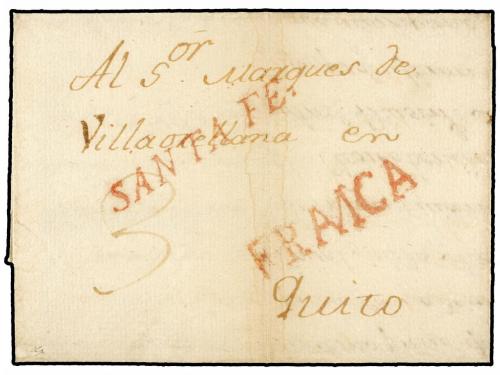 Al S.or Marques de
Villaorellana en
SANTA FE.
3
FRANCA
Quito